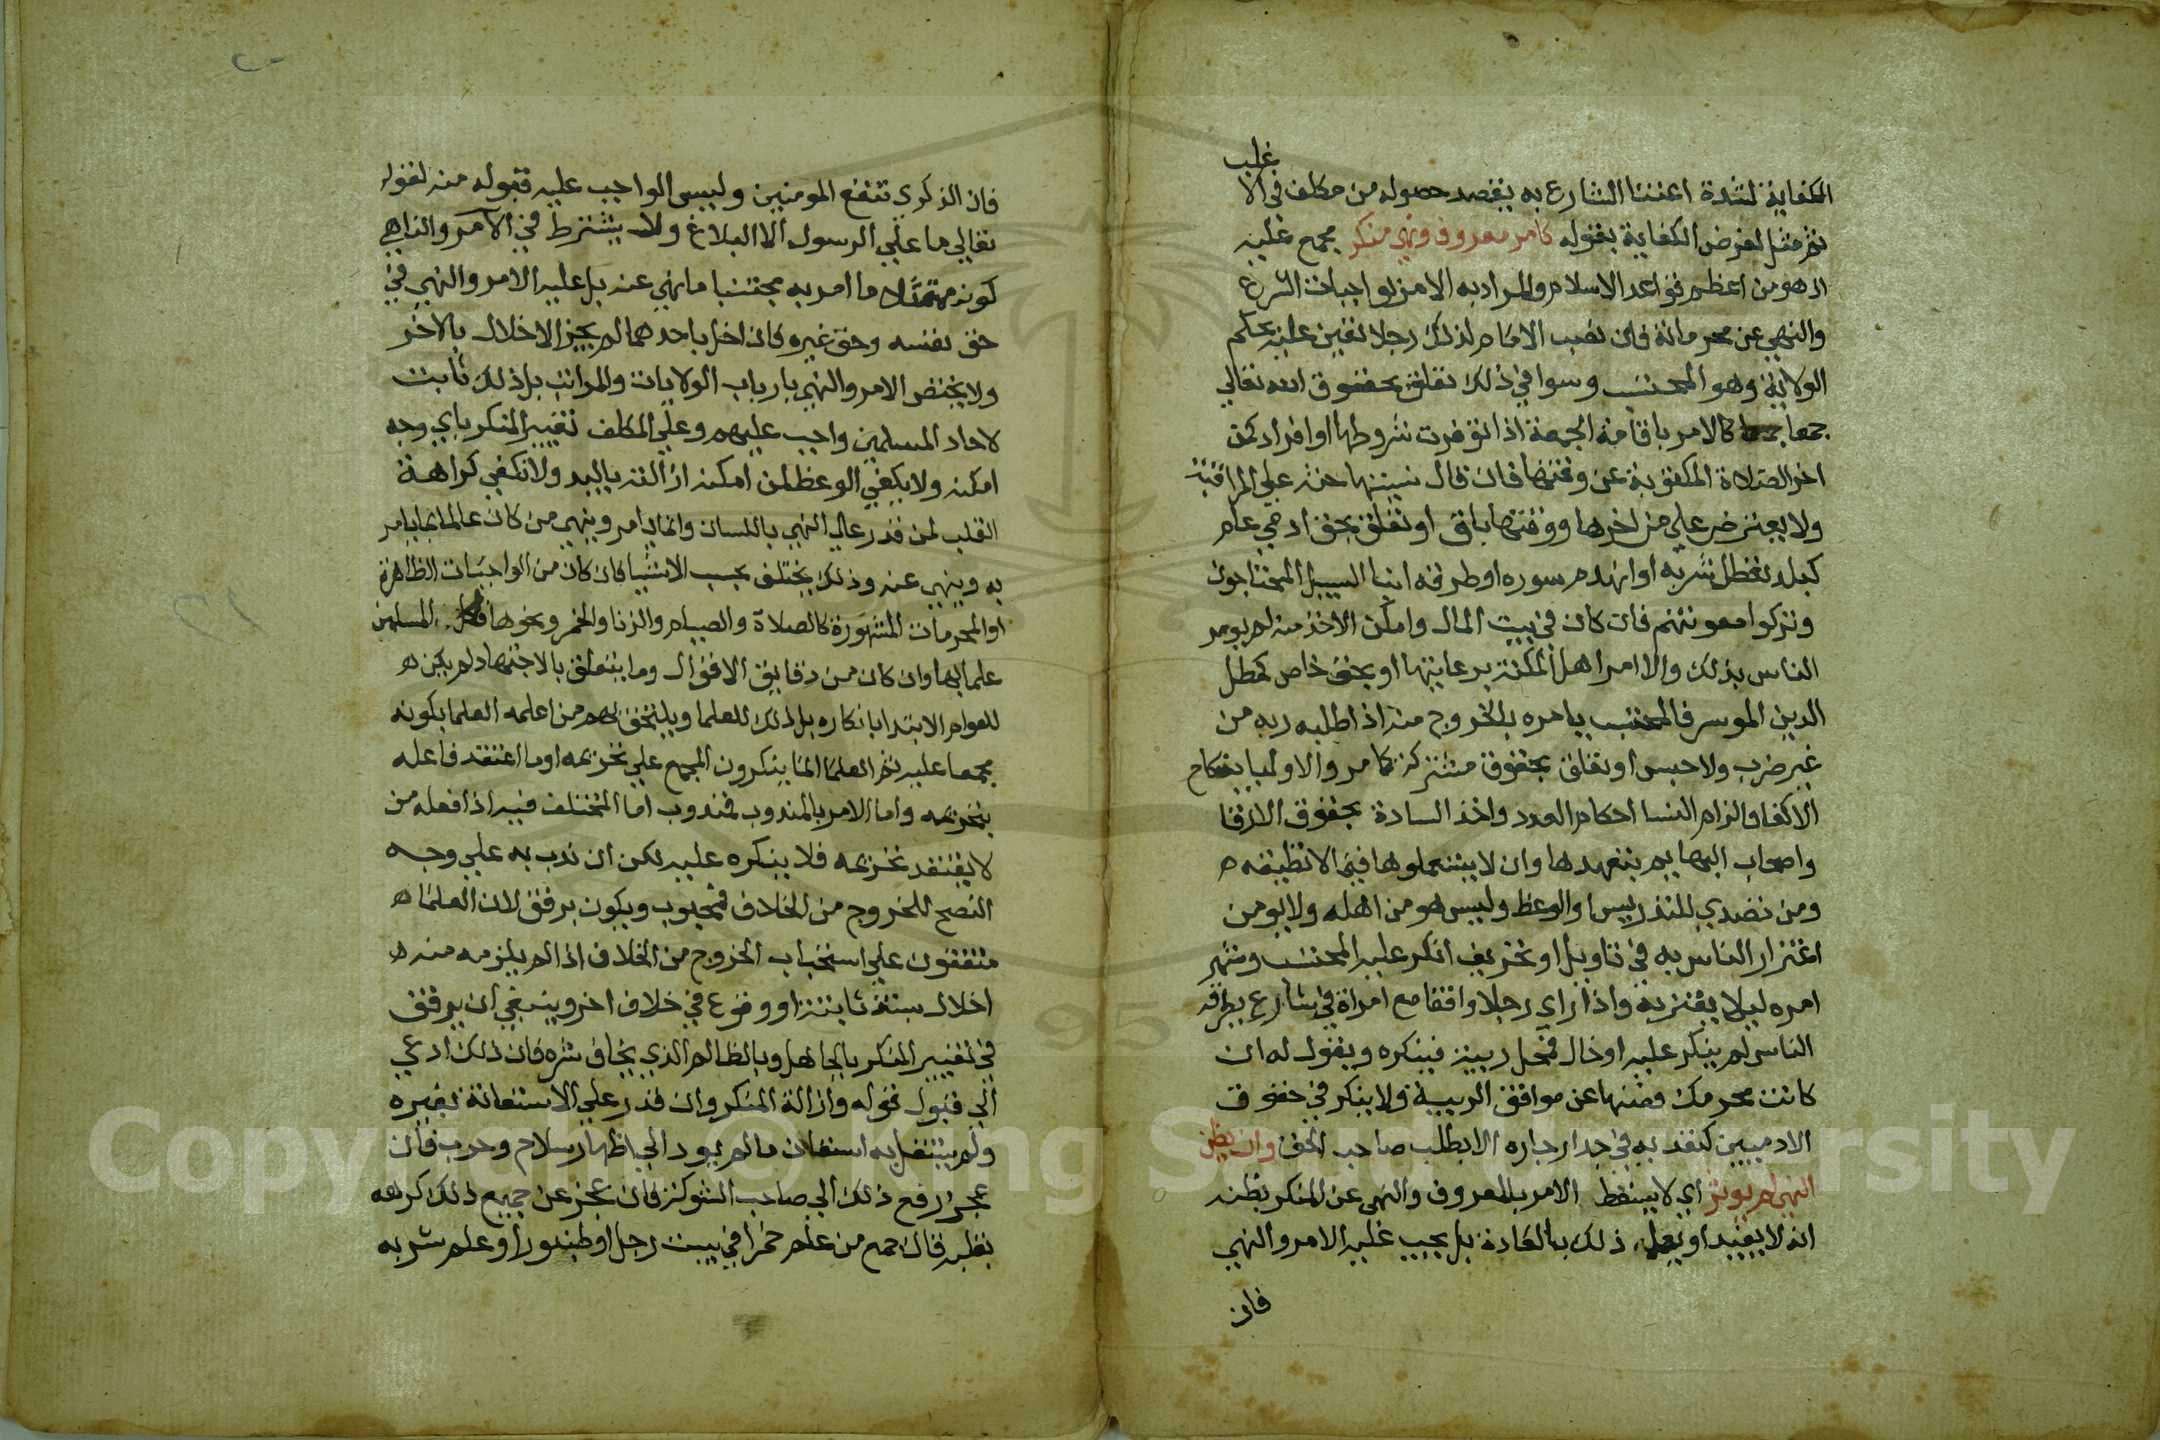 غلب
الكفاية لشدة اعتنا الشارع به بقصد حصوله من مكلف في الا
ثم مثل لفرض الكفاية بقوله كامر معروف ونهي منكر مجمع عليه
اذ هو من اعظم قواعد الاسلام والمراد به الامر بواجبات الشرع
والنهي عن محرماته فان نصب الامام لذلك رجلا تعين عليه بحكم
الولاية وهو المحتسب وسوا في ذلك تعلق بحقوق الله تعالي
جمعا كالامر باقامة الجمعة اذا توفرت شروطها او افراد كمن
اخر الصلاة المكتوبة عن وقتها فان قال نسيتها حثه علي المراقبة
ولا يعترض علي من اخرها ووقتها باق او تعلق بحق ادمي عام
كبلد تعطل شربه او انهدم سوره او طرقه ابنا السبيل المحتاجون
وتركوا معونتهم فان كان في بيت المال وامكن الاخذ منه لم يومر
الناس بذلك والا امر اهل المكنة برعايتها او بحق خاص كمطل
الدين الموسر فالمحتسب يامره بالخروج منه اذا طلبه ربه من
غير ضرب ولا حبس او تعلق بحقوق مشتركة كامر والاوليا بنكاح
الاكفا والزام النسا احكام العدد واخذ السادة بحقوق الارقا
واصحاب البهايم بتعهدها وان لا يستعملوها فيما لا تطيقه ه
ومن تصدي للتدريس او الوعظ وليس هو من اهله ولا يومن
اغترار الناس به في تاويل او تحريف انكر عليه المحتسب وشهر
امره ليلا يغتر به واذا راي رجلا واقفا مع امراة في شارع يطرقه
الناس لم ينكر عليه او خال فمحل ريبة فينكره ويقول له ان
كانت محرمك فصنها عن مواقف الريبة ولا ينكر في حقوق
الادميين كتعديه في جدار جاره الا بطلب صاحب الحق وان يظن
النهي لم يوثر اي لا يسقط الامر بالمعروف والنهي عن المنكر بظنه
انه لا يفيد او بعلم ذلك بالعادة بل يجب عليه الامر والنهي
فان
فان الذكري تنفع المومنين وليس الواجب عليه قبوله منه لقوله
تعالي ما علي الرسول الا البلاغ ولا يشترط في الآمر والناهي
كونه ممتثلا ما امر به مجتنبا ما نهي عنه بل عليه الامر والنهي في
حق نفسه وحق غيره فان اخل باحدهما لم يجز الاخلال بالاخر
ولا يختص الامر والنهي بارباب الولايات والمراتب بل ذلك ثابت
لاحاد المسلمين واجب عليهم وعلي المكلف تغيير المنكر باي وجه
امكنه ولا يكفي الوعظ لمن امكنه ازالته باليد ولا تكفي كراهة
القلب لمن قدر علي النهي باللسان وانما يامر وينهي من كان عالما بما يامر
به وينهي عنه وذلك يختلف بحسب الاشيا فان كان من الواجبات الظاهرة
او المحرمات المشهورة كالصلاة والصيام والزنا والخمر ونحوها فكل المسلمين
علما بها وان كان من دقايق الاقوال وما يتعلق بالاجتهاد لم يكن ه
للعوام الابتدا بانكاره بل ذلك للعلما ويلتحق بهم من اعلمه العلما بكونه
مجمعا عليه ثم العلما انما ينكرون المجمع علي تحريمه او ما اعتقد فاعله
بتحريمه واما الامر بالمندوب فمندوب اما المختلف فيه اذا فعله من
لا يعتقد تحريمه فلا ينكره عليه لكن ان ندب به علي وجه
النصح للخروج من الخلاف فمحبوب ويكون برفق لان العلما ه
متفقون علي استحباب الخروج من الخلاف اذا لم يلزمه منه ه
اخلال بسنة ثابتة او وقوع في خلاف اخر وينبغي ان يرفق
في تغيير المنكر بالجاهل وبالظالم الذي يخاف شره فان ذلك ادعي
الي قبول قوله وازالة المنكر وان قدر علي الاستعانة بغيره
ولم يستقل به استعان ما لم يود الي اظهار سلاح وحرب فان
عجز رفع ذلك الي صاحب الشوكة فان عجز عن جميع ذلك كرهه
بقلبه قال جمع من علم خمرا في بيت رجل او طنبورا وعلم شربه